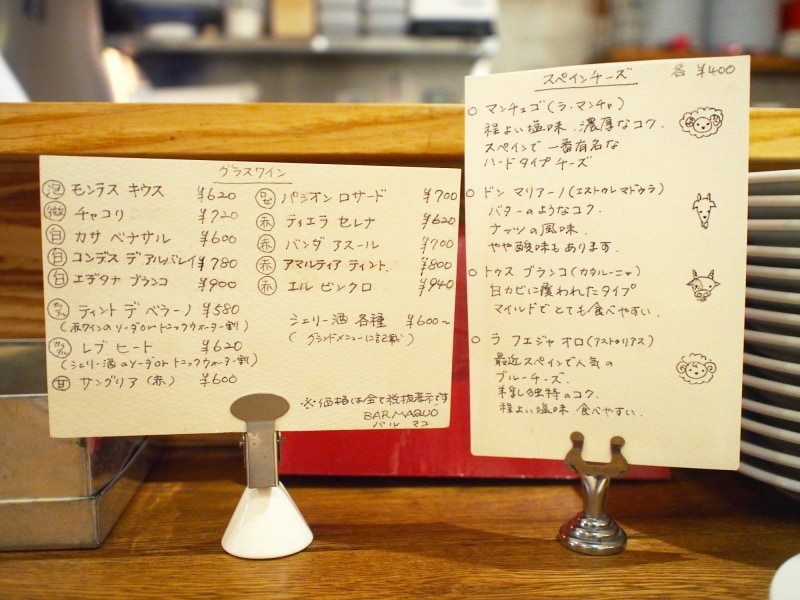 グラスワイン
泡 モンテス キウス ¥620
微 チャコリ ¥720
白 カサ ベナサル ¥600
白 コンデス デ アルバレイ ¥780
白 エデタナ ブランコ ¥900
カクテル ティント デ ベラーノ ¥580
(赤ワインのソーダor トニックウォーター割)
カクテル レブヒート ¥620
(シェリー酒のソーダor トニックウォーター割)
甘 サングリア(赤) ¥600
ロゼ パシオン ロサード ¥700
赤 ティエラ セレナ ¥620
赤 バンダ アスール ¥700
赤 アマルティア ティント ¥800
赤 エル ビンクロ ¥940
シェリー酒 各種 ¥600~
(グランドメニューに記載)
※価格は全て税抜表示です
BAR MAQUO
バル マコ
スペインチーズ 各 ¥400
○ マンチェゴ(ラ・マンチャ)
程よい塩味、濃厚なコク.
スペインで一番有名な
ハードタイプチーズ
○ ドン マリアーノ(エストゥレマドゥラ)
バターのようなコク.
ナッツの風味.
やや酸味もあります.
○ トゥス ブランコ(カタルーニャ)
白カビに覆われたタイプ
マイルドでとても食べやすい.
○ ラ フエジャ オロ(アストゥリアス)
最近スペインで人気の
ブルーチーズ.
羊乳独特のコク.
程よい塩味 食べやすい.